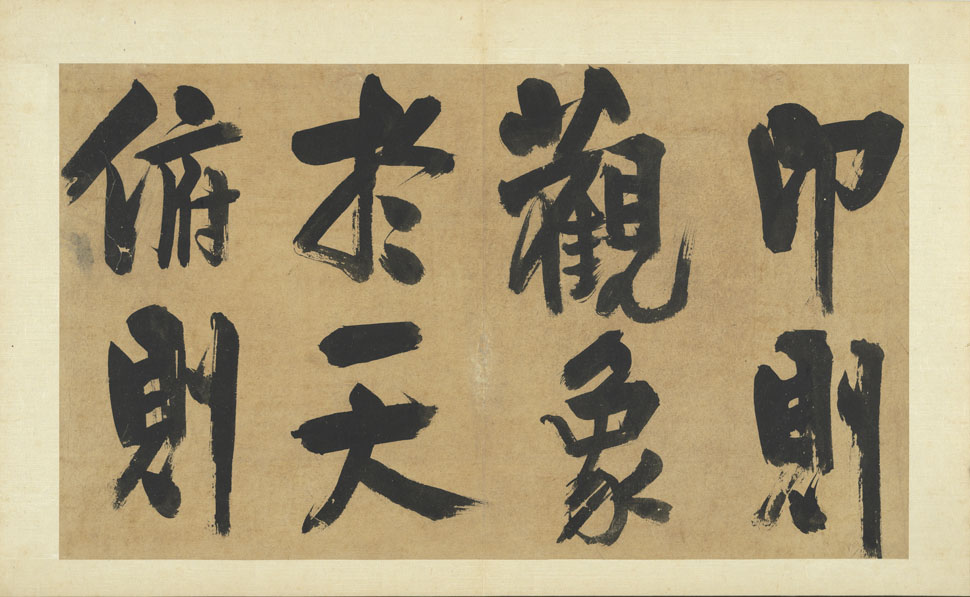 卬則
觀象
於天
俯則